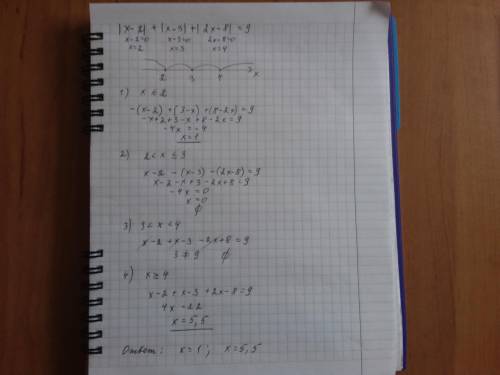 |x-2| + |x-3| + |2x-8| = 9
x-2=0 x-3=0 2x-8=0
x=2 x=3 x=4
2 3 4 x
1) x ≤ 2
-(x-2) + (3-x) + (8-2x) = 9
-x+2+3-x+8-2x=9
-4x = -4
x=1
2) 2 < x ≤ 3
x-2 - (x-3) - (2x-8) = 9
x-2-x+3-2x+8=9
-4x = 0
x=0
∅
3) 3 < x < 4
x-2+x-3-2x+8=9
3 ≠ 9 ∅
4) x ≥ 4
x-2+x-3+2x-8=9
4x = 22
x = 5,5
Ответ: x=1; x=5,5